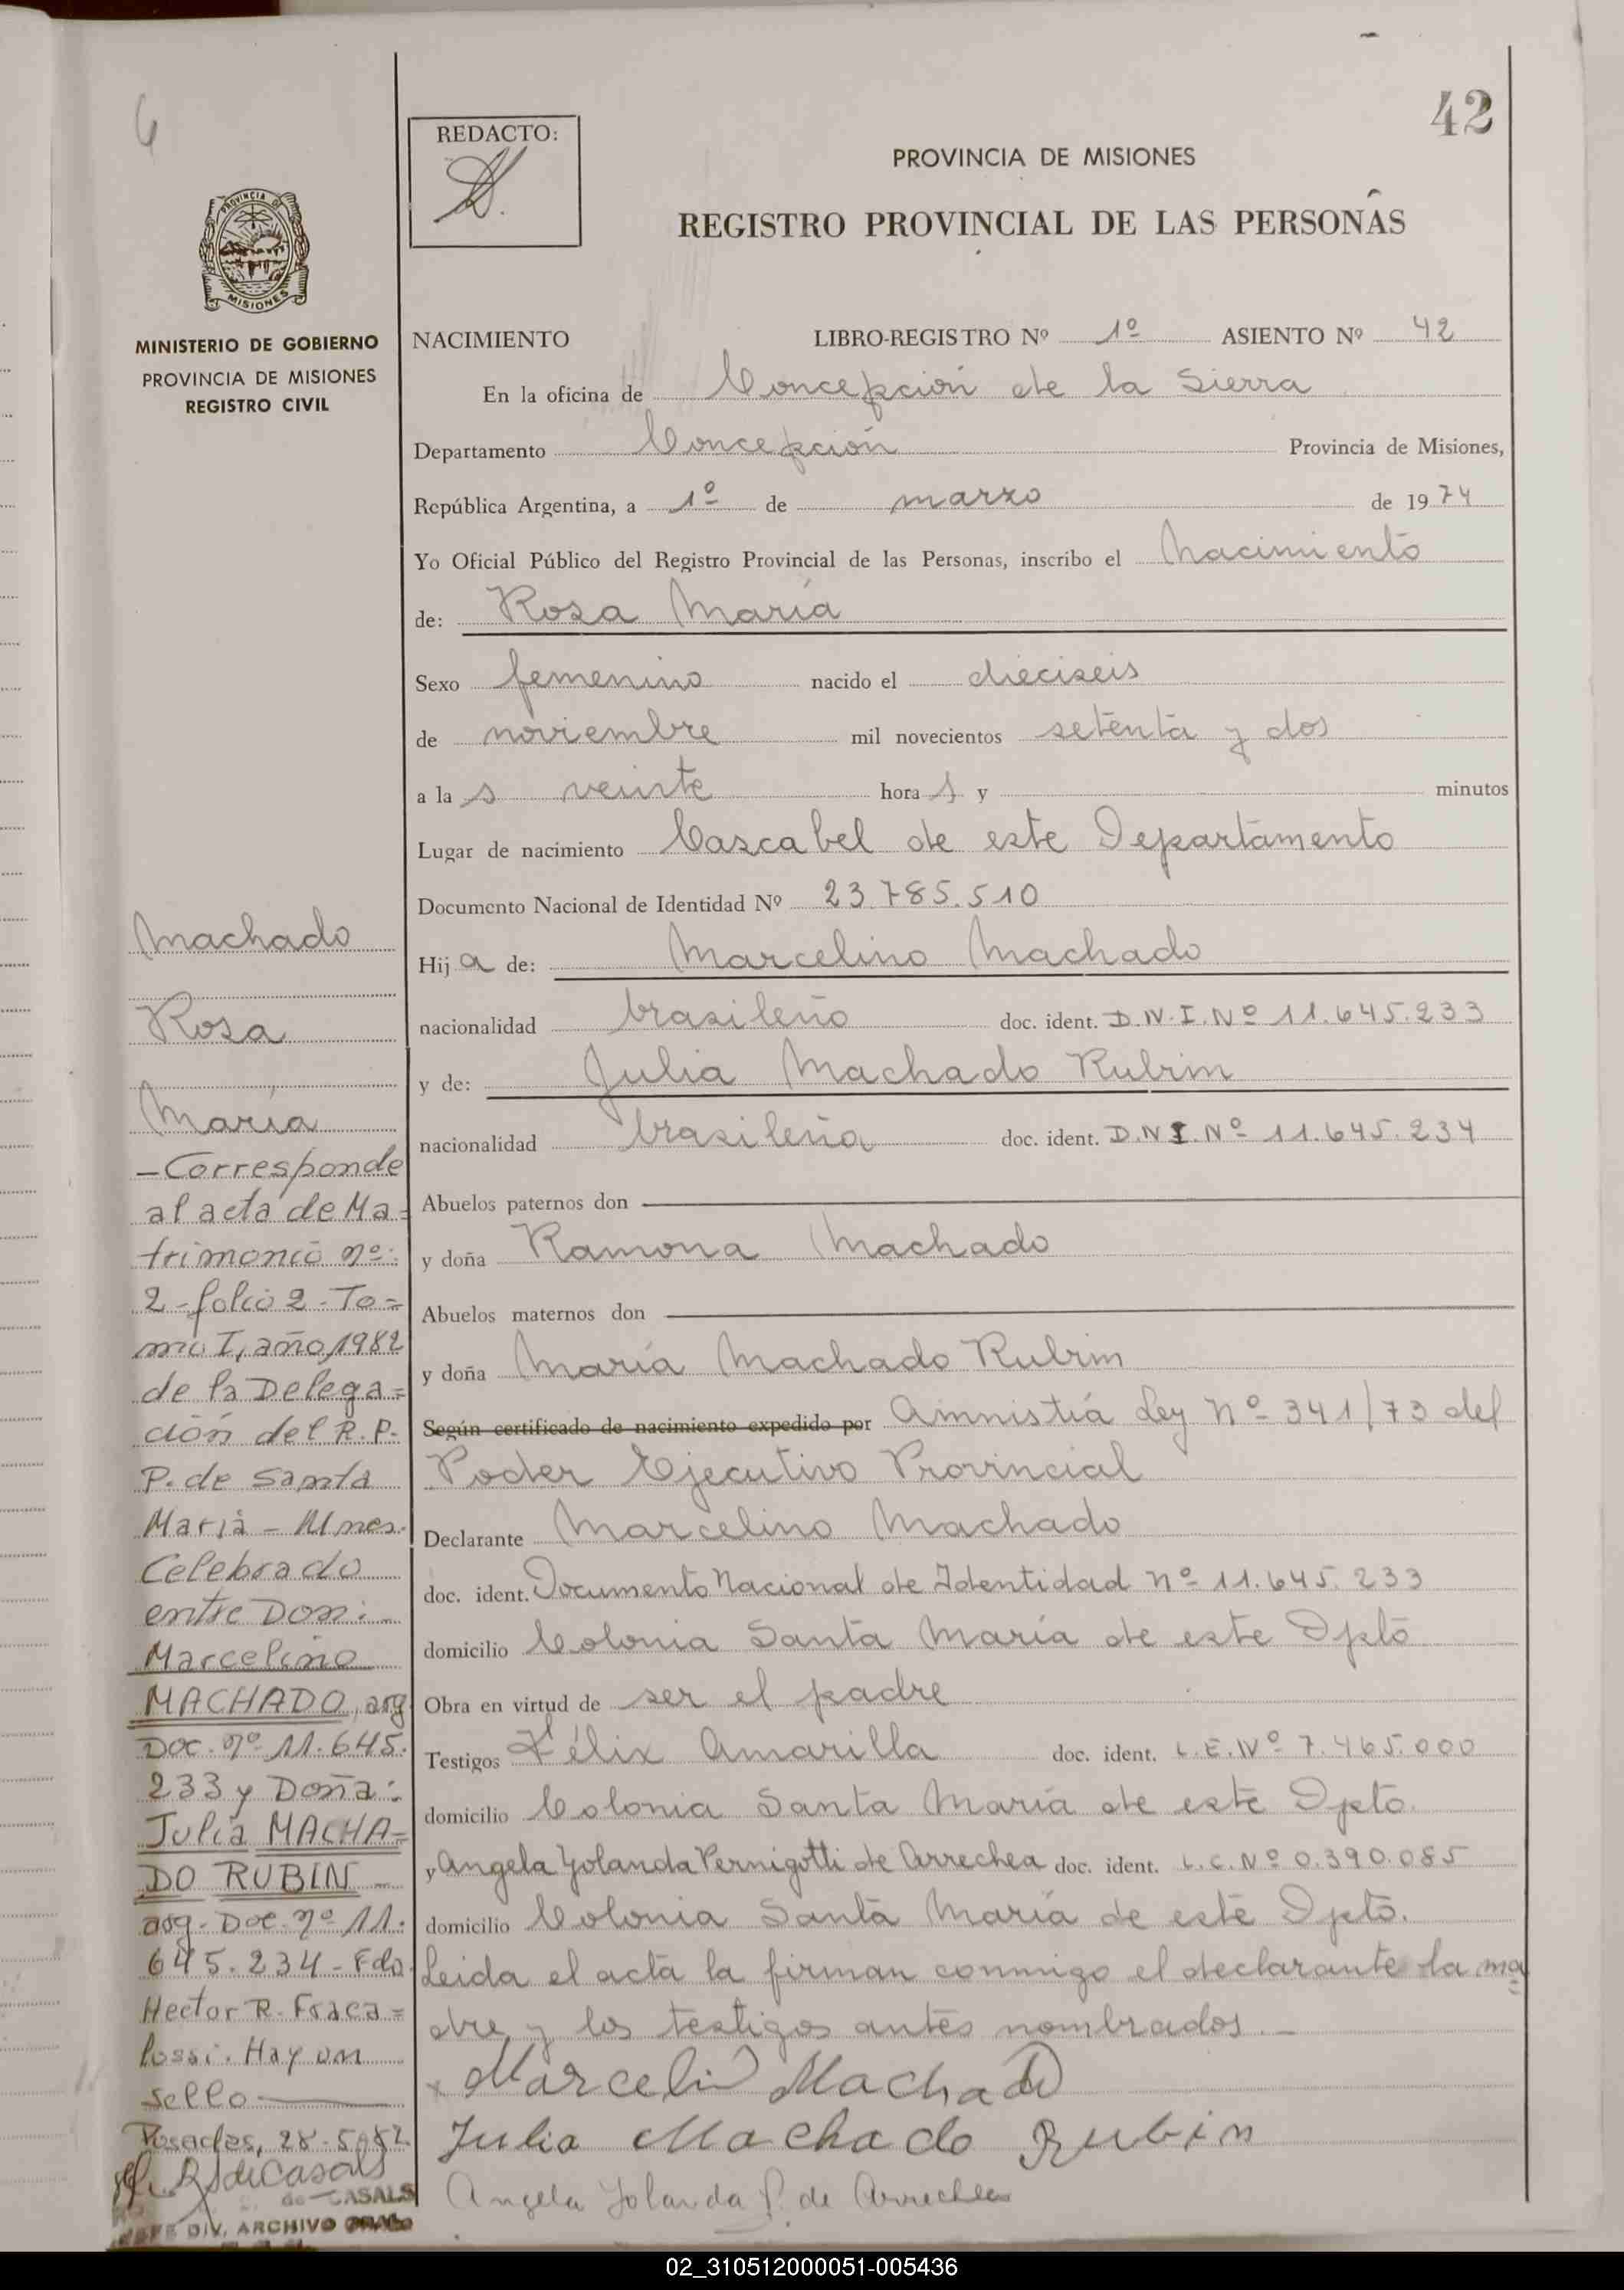 42
REDACTO:
PROVINCIA DE MISIONES
REGISTRO PROVINCIAL DE LAS PERSONAS
PROVINCIA DE
MISIONES
MINISTERIO DE GOBIERNO
PROVINCIA DE MISIONES
REGISTRO CIVIL
NACIMIENTO LIBRO-REGISTRO Nº 1º ASIENTO Nº 42
En la oficina de Concepción de la Sierra
Departamento Concepción Provincia de Misiones,
República Argentina, a 1º de marzo de 1974
Yo Oficial Público del Registro Provincial de las Personas, inscribo el Nacimiento
de: Rosa María
Sexo femenino nacido el dieciseis
de noviembre mil novecientos setenta y dos
a la s veinte hora s y minutos
Lugar de nacimiento Cascabel de este Departamento
Documento Nacional de Identidad Nº 23.785.510
Hij a de: Marcelino Machado
nacionalidad brasileño doc. ident. D.N.I.Nº 11.645.233
y de: Julia Machado Rubim
nacionalidad brasileña doc. ident. D.N.I.Nº 11.645.234
Abuelos paternos don
y doña Ramona Machado
Abuelos maternos don
y doña María Machado Rubim
Según certificado de nacimiento expedido por Amnistía Ley Nº 341/73 del
Poder Ejecutivo Provincial
Declarante Marcelino Machado
doc. ident. Documento Nacional de Identidad Nº 11.645.233
domicilio Colonia Santa María de este Dpto
Obra en virtud de ser el padre
Testigos Félix Amarilla doc. ident. L.E.Nº 7.465.000
domicilio Colonia Santa María de este Dpto.
y Angela Yolanda Pernigotti de Arrechea doc. ident. L.C.Nº 0.390.085
domicilio Colonia Santa María de este Dpto.
Leida el acta la firman conmigo el declarante la ma
dre, y los testigos antes nombrados.-
Marcelino Machado
Julia Machado Rubin
Angela Yolanda P. de Arrechea
Machado
Rosa
María
-Corresponde
al acta de Ma=
trimonio nº:
2-folio 2-To=
mo I, año, 1982
de la Delega=
ción del R.P.
P. de Santa
María - Mnes.
Celebrado
entre Don:
Marcelino
MACHADO, arg
Doc. nº 11.645.
233 y Doña:
Julia MACHA=
DO RUBIN
arg. Doc. nº 11.
645.234-Fdo
Hector R. Fraca=
lossi. Hay un
sello
Posadas, 28-5-82
de CASALS
JEFE DIV. ARCHIVO GRAL
02_310512000051-005436